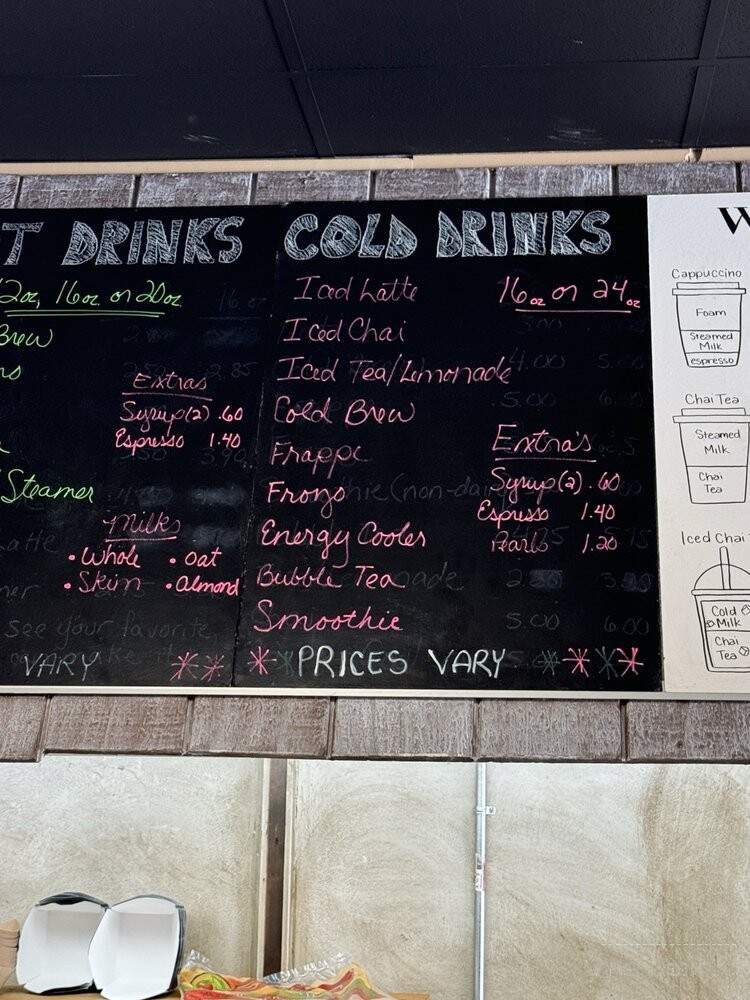 T DRINKS
2oz, 16oz or 20oz
Brew
Extras
Syrup(2) .60
Espresso 1.40
Steamer
Milks
• Whole • oat
• Skim • Almond
see your favorite
VARY
COLD DRINKS
16oz or 24oz
Iced Latte
Iced Chai
Iced Tea/Limonade
Cold Brew
Frappe
Frozo
Energy Cooler
Bubble Tea
Smoothie
Extra's
Syrup(2) .60
Espresso 1.40
Pearls 1.20
5.00 6.00
PRICES VARY
W
Cappuccino
Foam
Steamed
Milk
espresso
Chai Tea
Steamed
Milk
Chai
Tea
Iced Chai
Cold
Milk
Chai
Tea